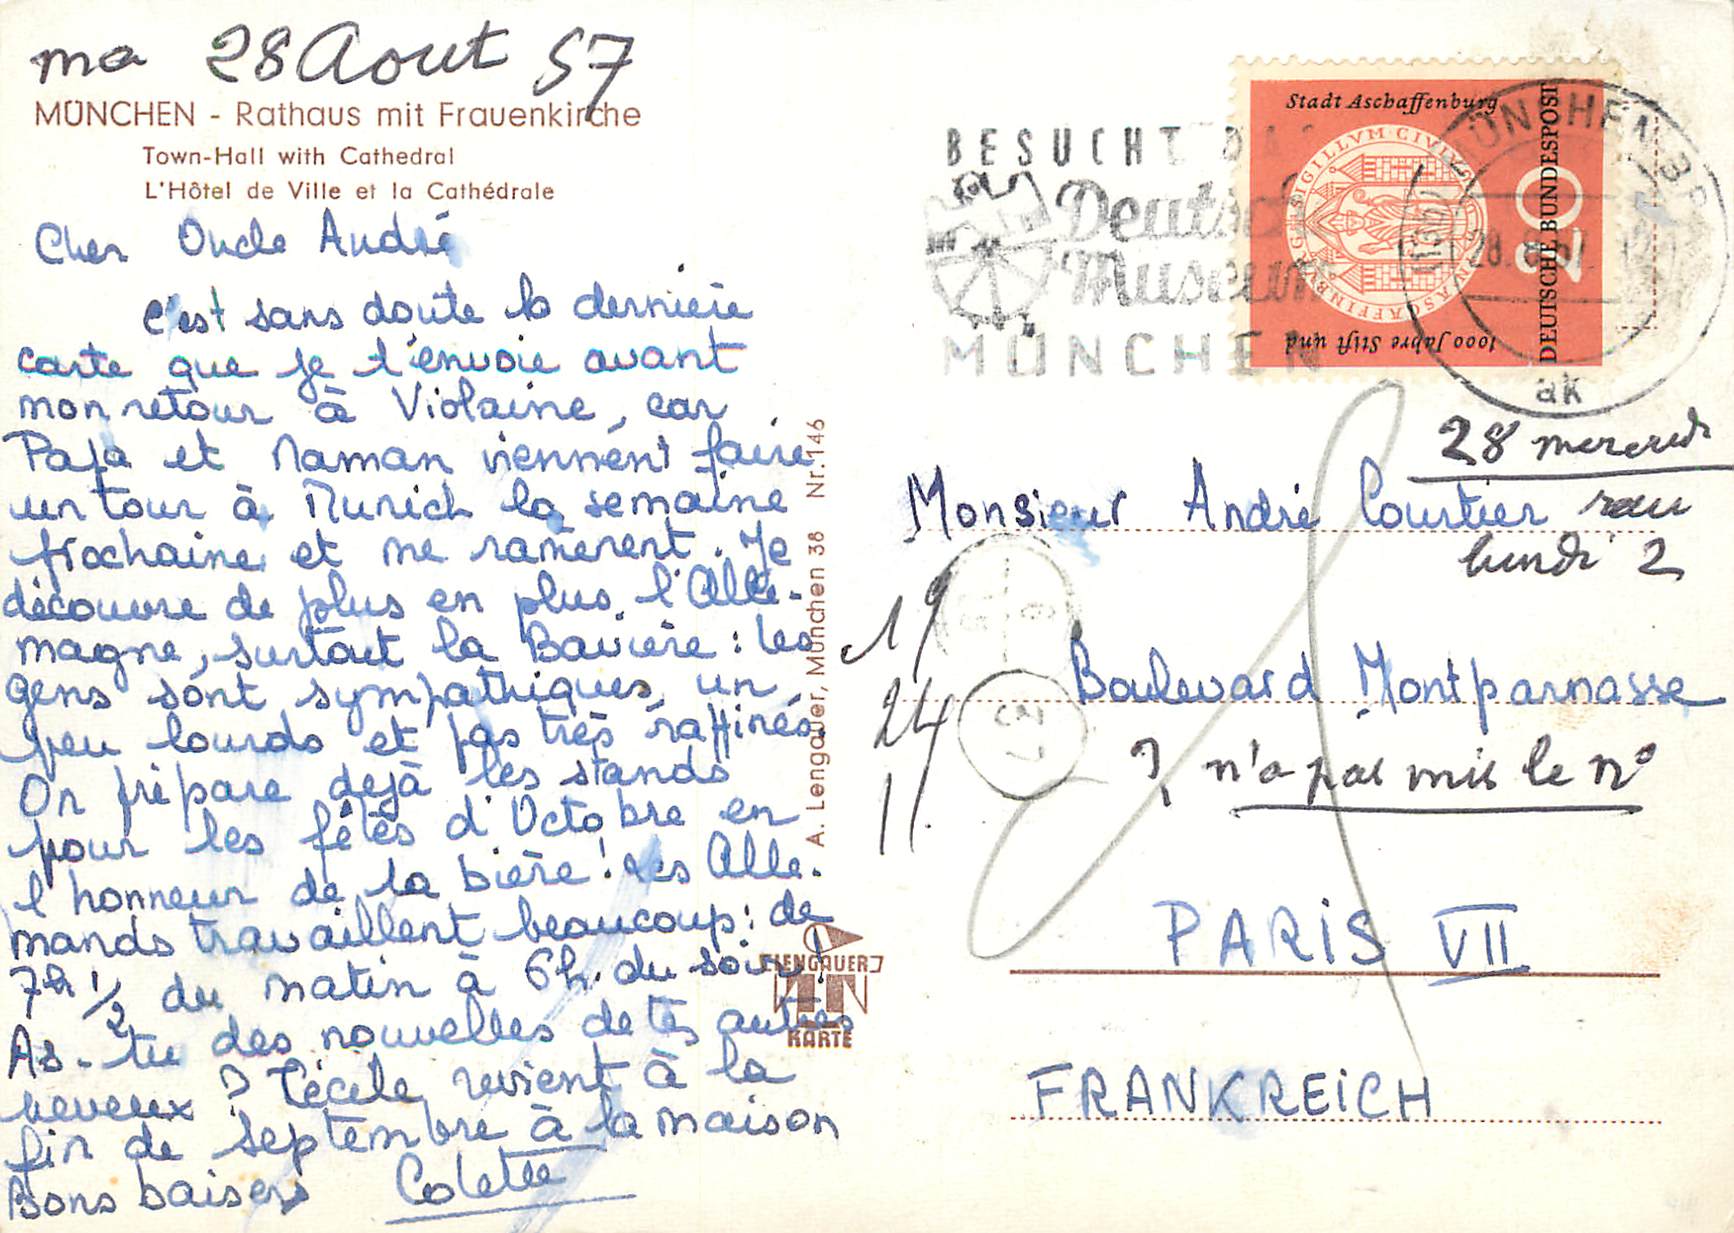 ma 28 Aout 57
MÜNCHEN - Rathaus mit Frauenkirche
Town-Hall with Cathedral
L'Hôtel de Ville et la Cathédrale
Cher Oncle André
c'est sans doute la dernière
carte que je t'envoie avant
mon retour à Violaine, car
Papa et Maman viennent faire
un tour à Munich la semaine
prochaine et me ramènent. Je
découvre de plus en plus l'Alle-
magne, surtout la Bavière : les
gens sont sympathiques, un
peu lourds et pas très raffinés.
On prépare dejà les stands
pour les fêtes d'Octobre en
l'honneur de la bière ! Les Alle-
mands travaillent beaucoup : de
7h 1/2 du matin à 6h. du soir !
As-tu des nouvelles de tes autres
neveux ? Cécile revient à la
fin de septembre à la maison
Bons baisers Colette
A. Lengauer, München 38 Nr. 146
LENGAUER
KARTE
BESUCHT DAS
Deutsche
Museum
MÜNCHEN
Stadt Aschaffenburg
SIGILLVM CIVIVM
1000 Jahre Stift und
20
DEUTSCHE BUNDESPOST
MÜNCHEN 3
28.8.57
ak
28 mercredi
Monsieur André Courtier
lundi 2
19
24
11.
37
Boulevard Montparnasse
? n'a pas mis le n°
PARIS VII
FRANKREICH